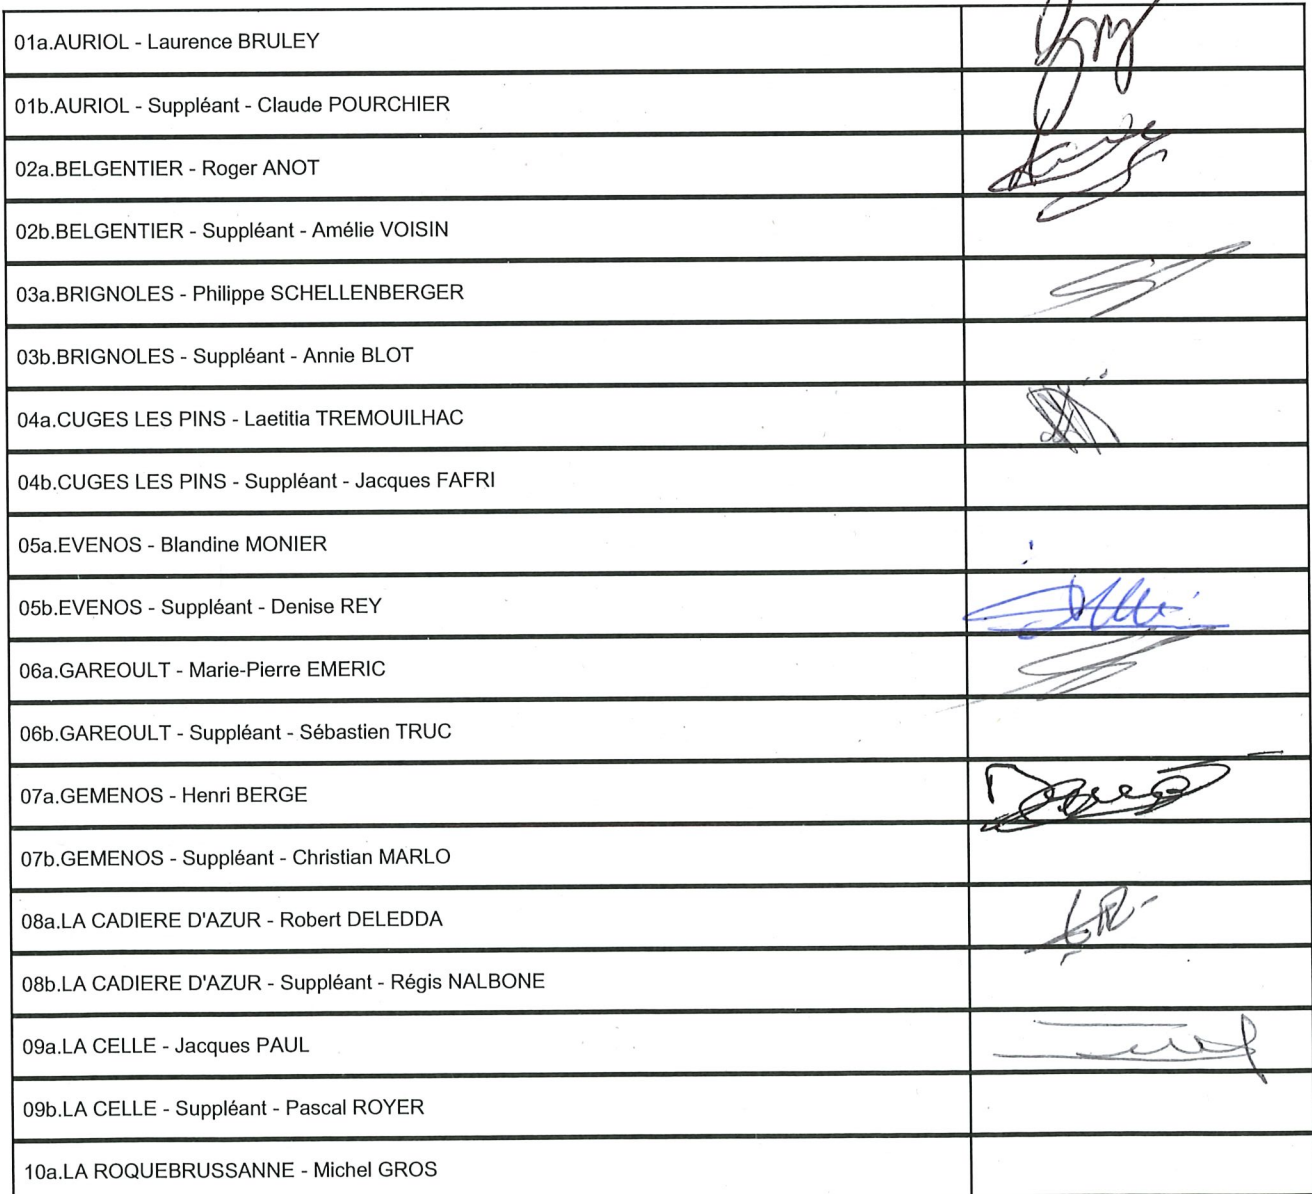 01a.AURIOL - Laurence BRULEY
01b.AURIOL - Suppléant - Claude POURCHIER
02a.BELGENTIER - Roger ANOT
02b.BELGENTIER - Suppléant - Amélie VOISIN
03a.BRIGNOLES - Philippe SCHELLENBERGER
03b.BRIGNOLES - Suppléant - Annie BLOT
04a.CUGES LES PINS - Laetitia TREMOUILHAC
04b.CUGES LES PINS - Suppléant - Jacques FAFRI
05a.EVENOS - Blandine MONIER
05b.EVENOS - Suppléant - Denise REY
06a.GAREOULT - Marie-Pierre EMERIC
06b.GAREOULT - Suppléant - Sébastien TRUC
07a.GEMENOS - Henri BERGE
07b.GEMENOS - Suppléant - Christian MARLO
08a.LA CADIERE D'AZUR - Robert DELEDDA
08b.LA CADIERE D'AZUR - Suppléant - Régis NALBONE
09a.LA CELLE - Jacques PAUL
09b.LA CELLE - Suppléant - Pascal ROYER
10a.LA ROQUEBRUSSANNE - Michel GROS